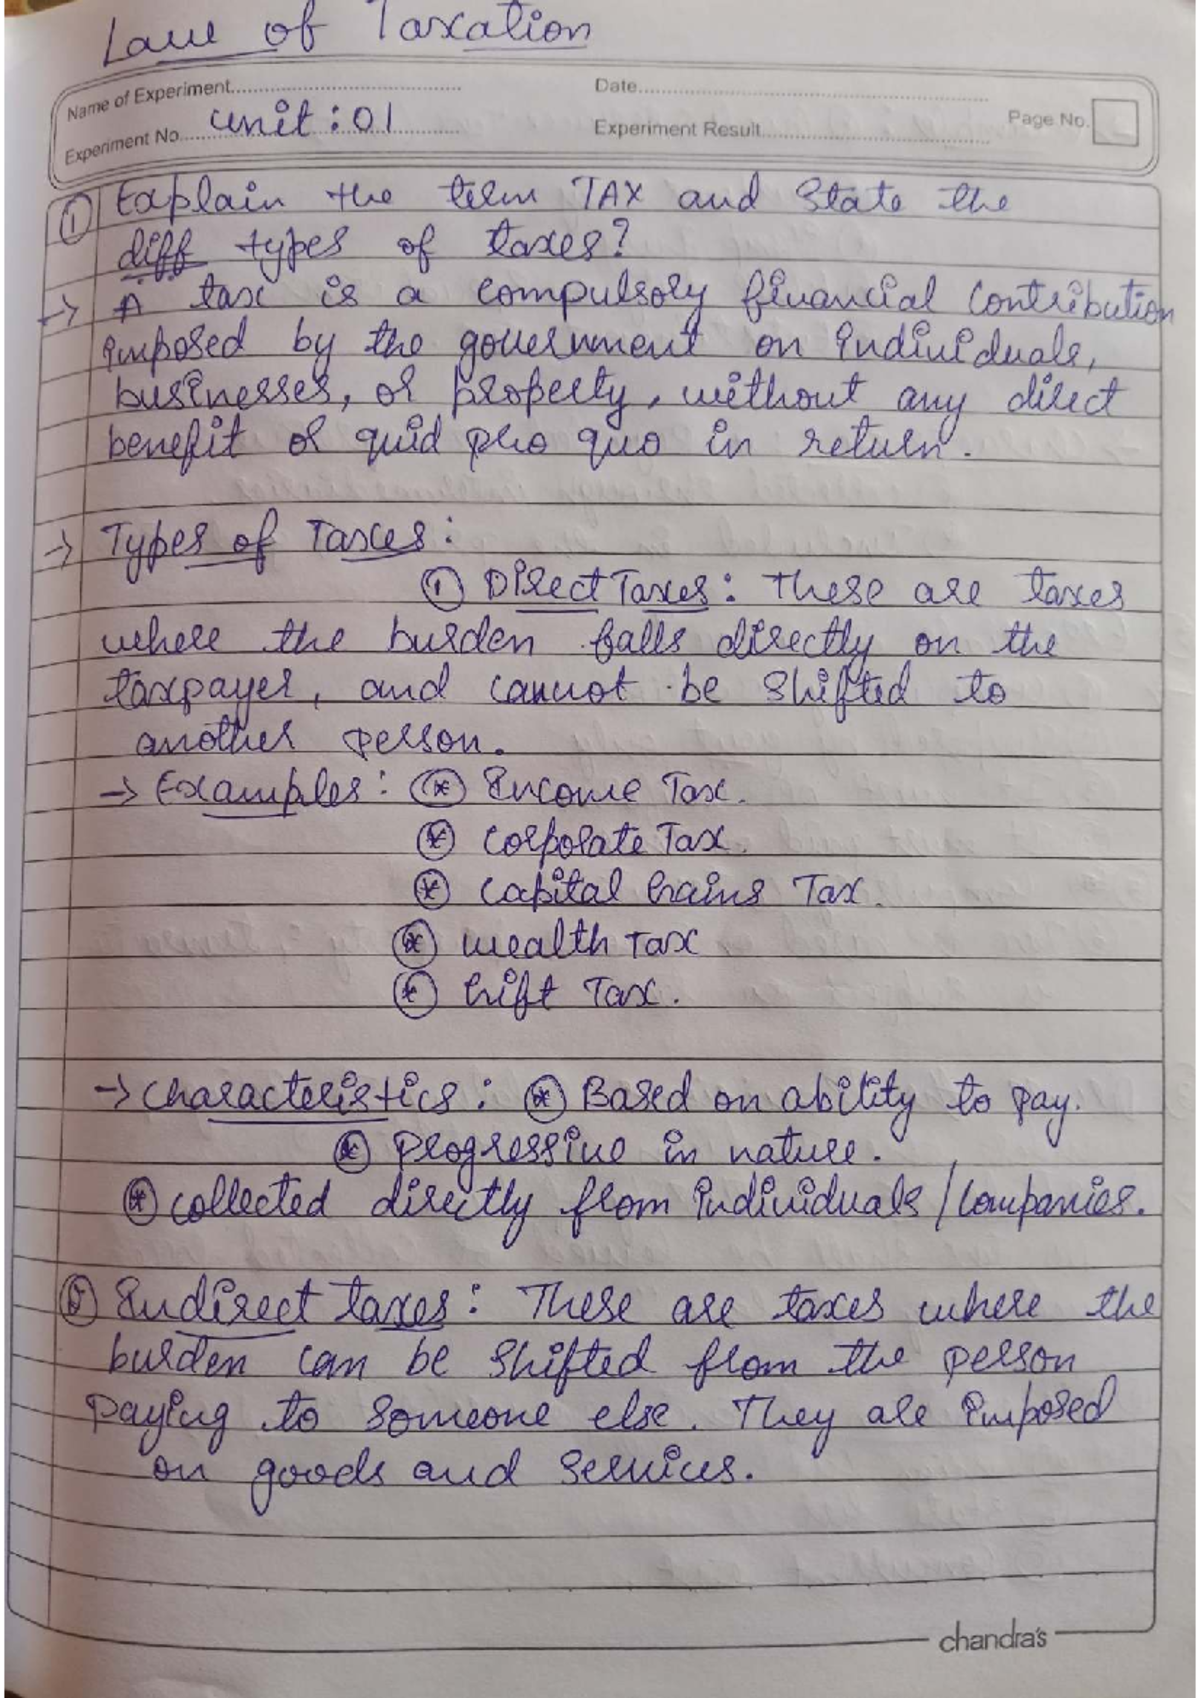 Law of Taxation
Name of Experiment
Date
Page No.
Experiment No. unit : 01
Experiment Result
① Explain the term TAX and State the
diff types of taxes?
→ A tax is a compulsory financial contribution
imposed by the government on individuals,
businesses, or property, without any direct
benefit or quid pro quo in return.
→ Types of Taxes :
① Direct Taxes : These are taxes
where the burden falls directly on the
taxpayer, and cannot be shifted to
another person.
→ Examples : * Income Tax.
* Corporate Tax.
* Capital Gains Tax.
* Wealth Tax
* Gift Tax.
→ Characteristics : * Based on ability to pay.
* Progressive in nature.
* Collected directly from individuals / Companies.
② Indirect taxes : These are taxes where the
burden can be shifted from the person
paying to someone else. They are imposed
on goods and services.
chandra's